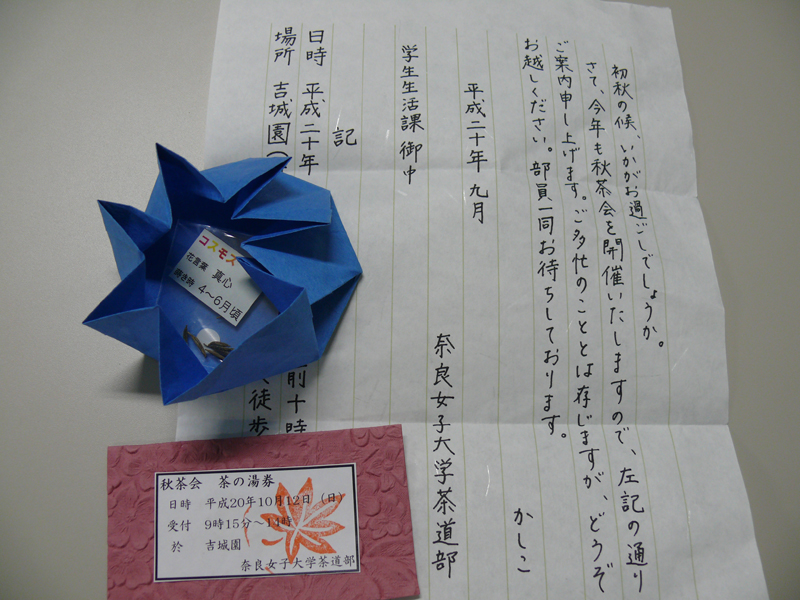 初秋の候、いかがお過ごしでしょうか。
さて、今年も秋茶会を開催いたしますので、左記の通り
ご案内申し上げます。ご多忙のこととは存じますが、どうぞ
お越しください。部員一同お待ちしております。
かしこ
平成二十年 九月
奈良女子大学茶道部
学生生活課 御中
記
日時 平成二十年
前十時
場所 吉城園(
徒歩
コスモス
花言葉 真心
蒔き時 4〜6月頃
秋茶会 茶の湯券
日時 平成20年10月12日(日)
受付 9時15分〜14時
於 吉城園
奈良女子大学茶道部